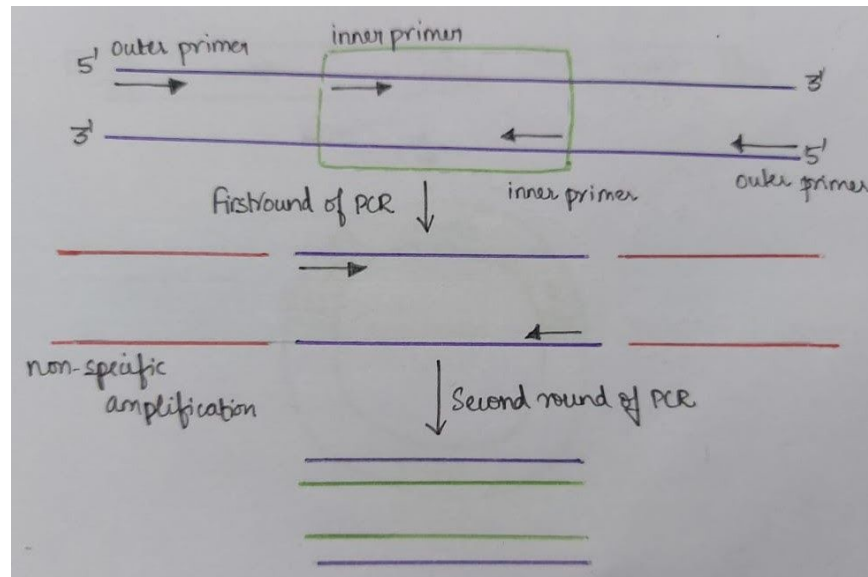 outer primer
inner primer
5'
3'
3'
5'
inner primer
outer primer
First round of PCR
non-specific
amplification
Second round of PCR